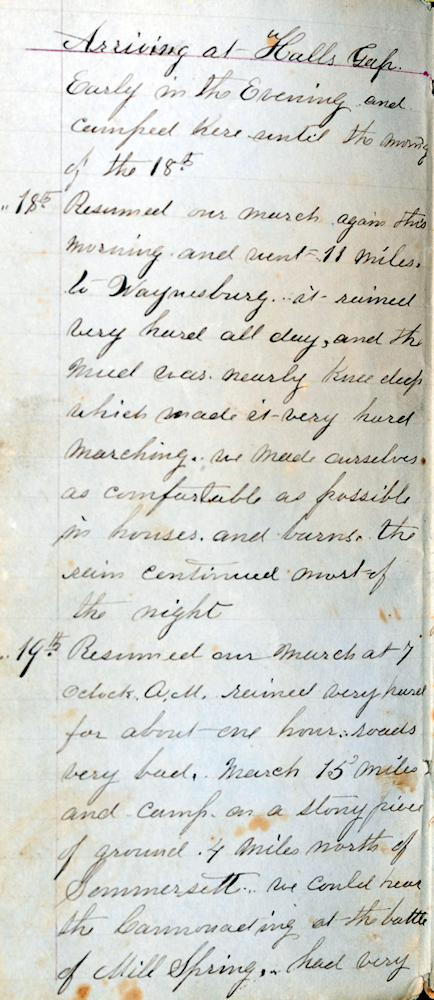 Arriving at "Halls Gap.
Early in the Evening and
camped here until the morning
of the 18th
" 18th Resumed our march again this
morning and went 11 miles.
to Waynesburg. it rained
very hard all day, and the
mud was nearly knee deep
which made it very hard
marching. we made ourselves
as comfortable as possible
in houses. and barns. the
rain continued most of
the night
" 19th Resumed our March at 7
oclock. A.M. rained very hard
for about one hour. roads
very bad. March 15 miles
and camp. on a stony piece
of ground. 4 miles north of
Sommersett. we could hear
the Cannonading at the battle
of Mill Spring. had very